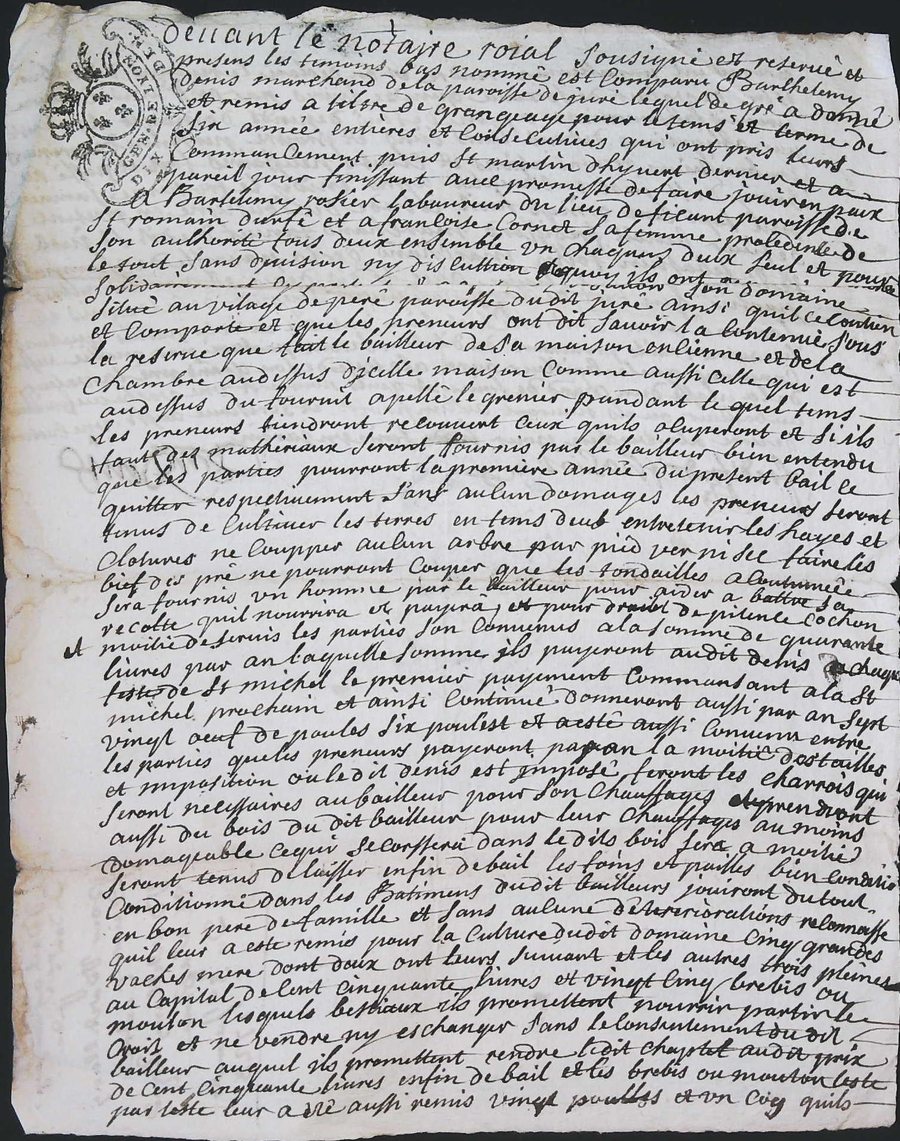 GEN DE LYON
DIX DE
devant le notaire roial sousigné et reservé et
presens les temoins bas nommé est Comparu Barthelemy
denis marchand de la paroisse de juré lequel de gré a donné
et remis a tiltre de grangeage pour le tems et terme de
six année entieres et Consecutives qui ont pris leurs
Commancement puis St martin dhyvert dernier et a
pareil jour finissant avec promesse de faire jouir en paix
A Bartelemy rosier laboureur du lieu de ficant paroisse de
St romain durfé et a francoise Cornet sa femme procedente de
son authorité tous deux ensemble un Chaqun deux seul et pour
le tout sans division ny discution quoy ils ont son domaine
solidairement
situé au vilage de peré paroisse du dit juré ainsi quil ce Contien
et Comporte et que les preneurs ont dit savoir la Contenue sous
la reserve que fait le bailleur de sa maison encienne et de la
Chambre au dessus dicelle maison Comme aussi celle qui est
au dessus du fournit apellé le grenier pandant le quel tems
les preneurs tiendront recouvert ceux quils ocuperont et si ils
faut des matheriaux seront fournis par le bailleur bien entendu
que les parties pourront la premiere année du present bail ce
quitter respectivement sans aucun domages les preneurs seront
tenus de Cultiver les terres en tems deub entretenir les hayes et
Clotures ne Coupper aucun arbre par pied ver ni sec faire les
bief des pré ne pourront Couper que les tondailles acoutumée
sera fournis un homme par le bailleur pour aider a battre sa
recolte quil nourrira et payera et pour droit de pitence Cochon
et moitié deservis les parties son Convenus a la somme de quarante
livres par an laquelle somme ils payeront audit denis a chaque
feste de St michel le premier payement Commansant a la St
michel prochain et ainsi Continué donneront aussi par an sept
vingt oeuf de poules six poulest et a esté aussi Convenu entre
les parties que les preneurs payeront par an la moitié dostailles
et imposition ou ledit denis est imposé feront les charrois qui
seront necessaires au bailleur pour son Chauffages et prendront
aussi du bois du dit bailleur pour leur Chauffages au moins
domageable ce qui se dans le dits bois sera a moitié
seront tenus de laisser enfin de bail les foins et pailles bien Conditio
Conditionné dans les Batimens dudit bailleurs jouiront du tout
en bon pere de famille et sans aucune deteriorations reconnoisse
quil leur a esté remis pour la Culture dudit domaine Cinq grandes
vaches mere dont deux ont leurs suivant et les autres trois pleines
au Capital de Cent Cinquante livres et vingt Cinq brebis ou
mouton lesquels bestiaux ils promettent nourrir partir le
Croit et ne vendre ny eschanger sans le Consentement du dit
bailleur auquel ils promettent rendre ledit chaptel audit prix
de Cent Cinquante livres enfin de bail et les brebis ou mouton teste
par teste leur a eté aussi remis vingt poulles et un Coq quils